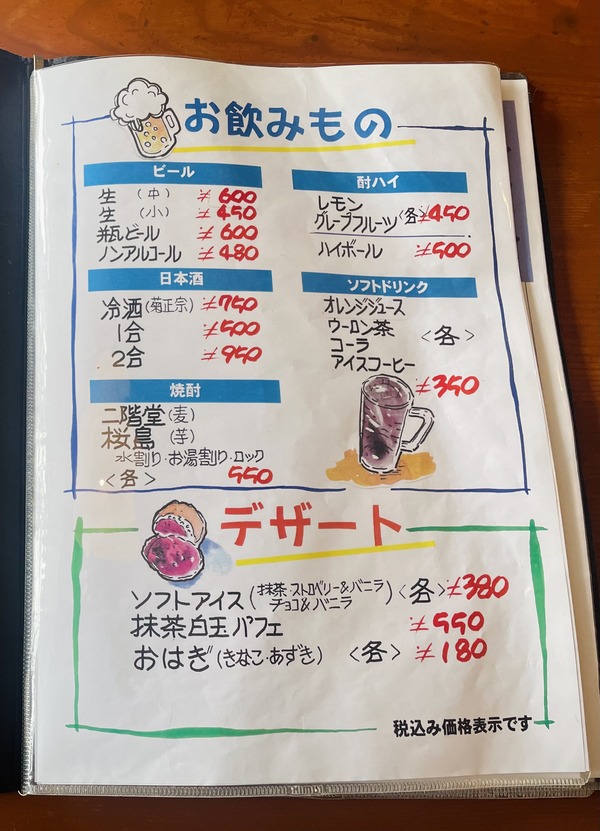 お飲みもの
ビール
生(中) ¥600
生(小) ¥450
瓶ビール ¥600
ノンアルコール ¥480
日本酒
冷酒(菊正宗) ¥750
1合 ¥500
2合 ¥950
焼酎
二階堂(麦)
桜島(芋)
水割り・お湯割り・ロック
<各> 550
酎ハイ
レモン
グレープフルーツ<各>¥450
ハイボール ¥500
ソフトドリンク
オレンジジュース
ウーロン茶
コーラ <各>
アイスコーヒー
¥350
デザート
ソフトアイス(抹茶・ストロベリー&バニラ
チョコ&バニラ)<各>¥380
抹茶白玉パフェ ¥550
おはぎ(きなこ・あずき) <各> ¥180
税込み価格表示です